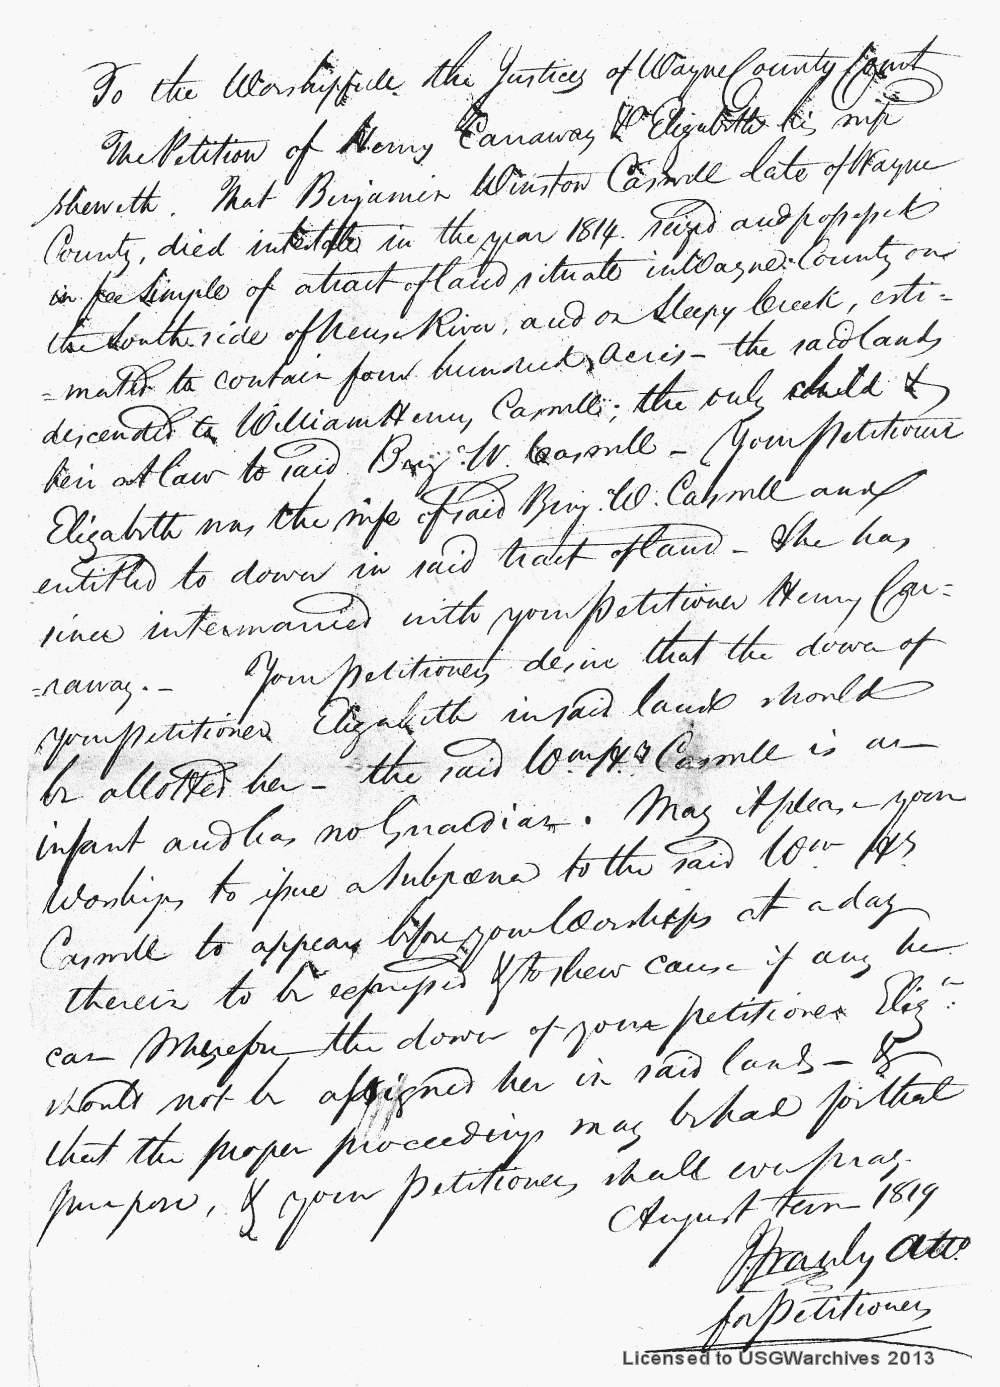 To the Worshipfull the Justices of Wayne County Court
The Petition of Henry Carraway & Elizabeth his wife
sheweth. That Benjamin Winston Caswell late of Wayne
County, died intestate in the year 1814. seized and possessed
in fee simple of a tract of land situate in Wayne County on
the South side of Neuse River, and on Sleepy Creek, esti=
=mated to contain four hundred Acres - the said lands
descended to William Henry Caswell; the only child &
heir at law to said Benj. W. Caswell - Your Petitioner
Elizabeth was the wife of said Benj. W. Caswell and
entitled to dower in said tract of land - She has
since intermarried with your petitioner Henry Car=
=raway. - Your petitioners desire that the dower of
your petitioner Elizabeth in said land should
be allotted her - the said Wm. H. Caswell is an
infant and has no Guardian. May it please your
Worships to issue a Subpœna to the said Wm H.
Caswell to appear before your Worships at a day
therein to be expressed & to shew cause if any he
can Wherefore the dower of your petitioner Eliz.
should not be assigned her in said lands - &
that the proper proceedings may be had for that
purpose, & your petitioners shall ever pray.
August term 1819
Atto.
for Petitioners
Licensed to USGWarchives 2013